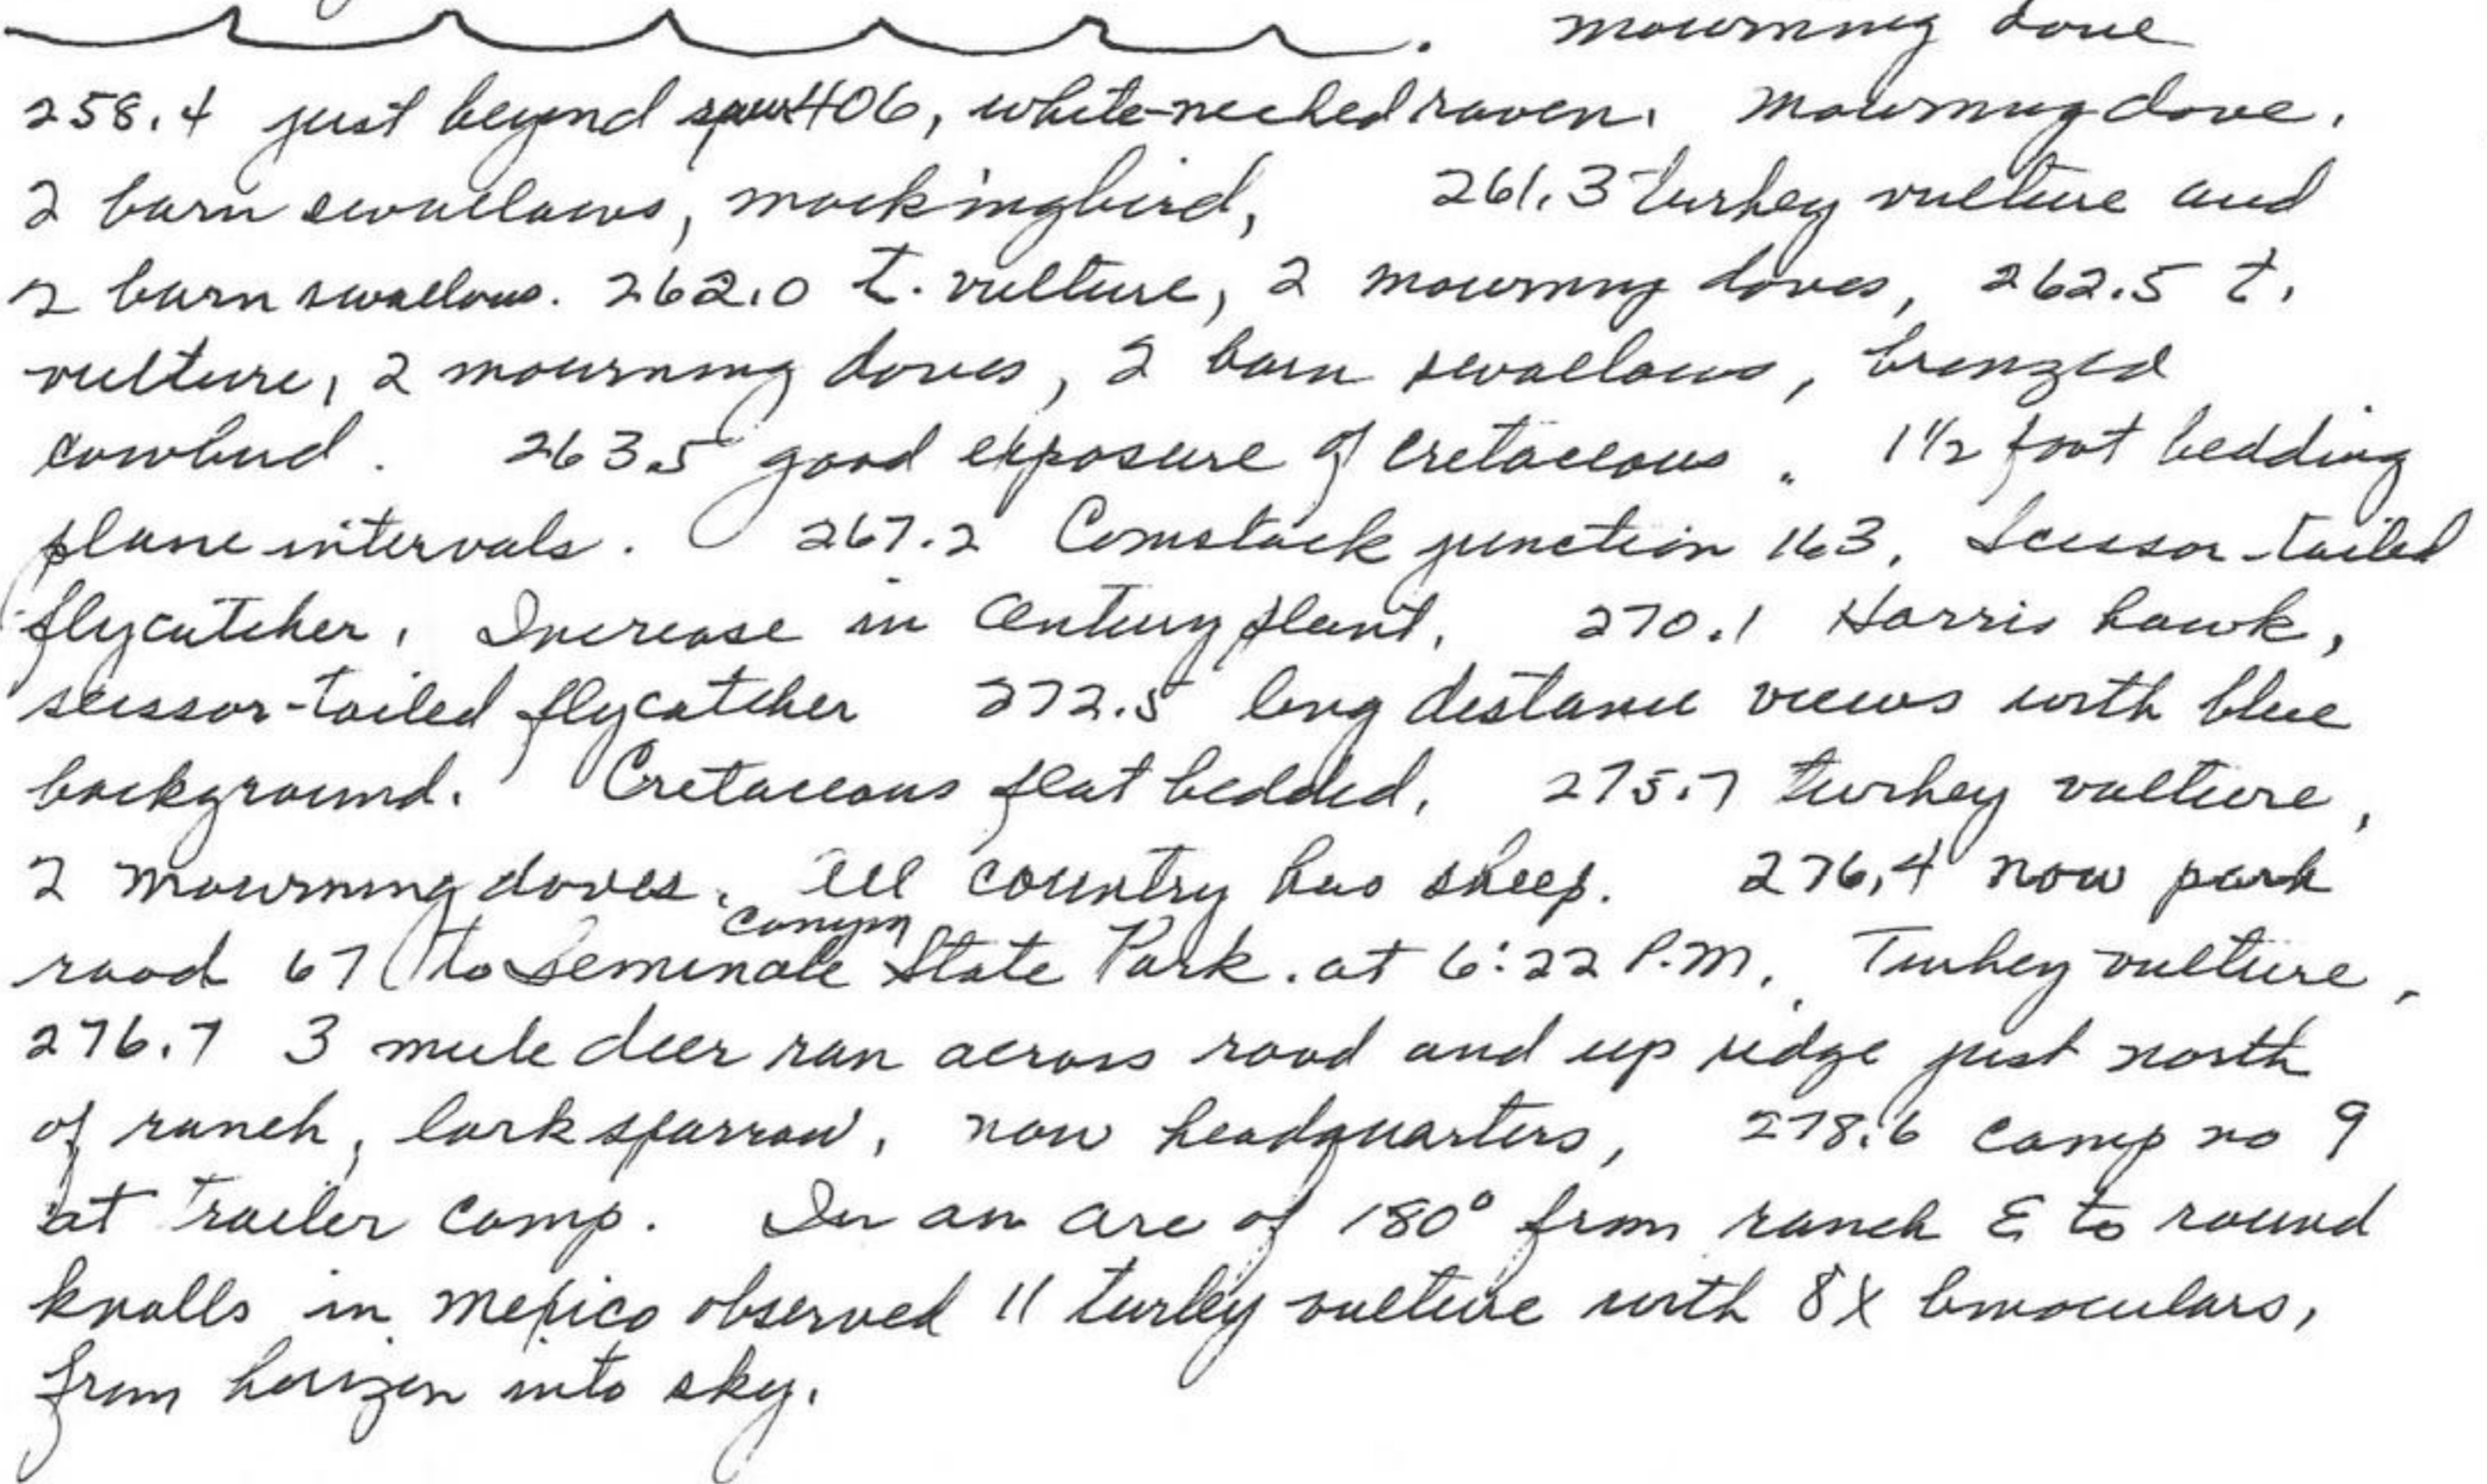 mourning dove
258.4 just beyond spur 406, white-necked raven. Mourning dove.
2 barn swallows, mockingbird, 261.3 turkey vulture and
2 barn swallows. 262.0 t. vulture, 2 mourning doves, 262.5 t.
vulture, 2 mourning doves, 2 barn swallows, bronzed
cowbird. 263.5 good exposure of Cretaceous. 1 1/2 foot bedding
plane intervals. 267.2 Comstock junction 163. Scissor-tailed
flycatcher. Increase in Century plant. 270.1 Harris hawk,
scissor-tailed flycatcher 272.5 long distance views with blue
background. Cretaceous flat bedded. 275.7 turkey vulture,
2 mourning doves. All country has sheep. 276.4 now park
road 67 (to Seminole Canyon State Park. at 6:22 P.M. Turkey vulture.
276.7 3 mule deer ran across road and up ridge just north
of ranch, lark sparrow, now headquarters, 278.6 camp no 9
at Trailer Camp. In an arc of 180° from ranch E to round
knolls in Mexico observed 11 turkey vulture with 8X binoculars,
from horizon into sky.